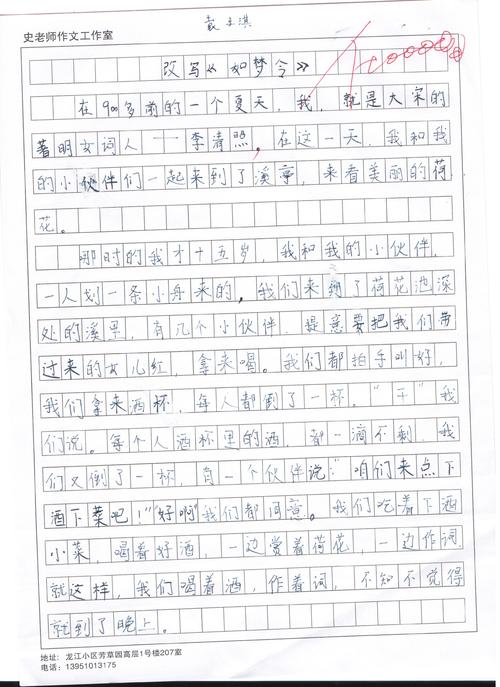 袁玉淇
史老师作文工作室
改写《如梦令》
在900多前的一个夏天，我，就是大宋的
著明女词人——李清照。在这一天，我和我
的小伙伴们一起来到了溪亭，来看美丽的荷
花。
那时的我才十五岁，我和我的小伙伴，
一人划一条小舟来的，我们来到了荷花池深
处的溪里，有几个小伙伴，提意要把我们带
过来的女儿红，拿来喝。我们都拍手叫好，
我们拿来酒杯，每人都倒了一杯。“干”我
们说。每个人酒杯里的酒，都一滴不剩，我
们又倒了一杯，有一个伙伴说：“咱们来点下
酒下菜吧！”“好啊”我们都同意。我们吃着下酒
小菜，喝着好酒，一边赏着荷花，一边作词
就这样，我们喝着酒，作着词，不知不觉得
就到了晚上。
地址：龙江小区芳草园高层1号楼207室
电话：13951013175